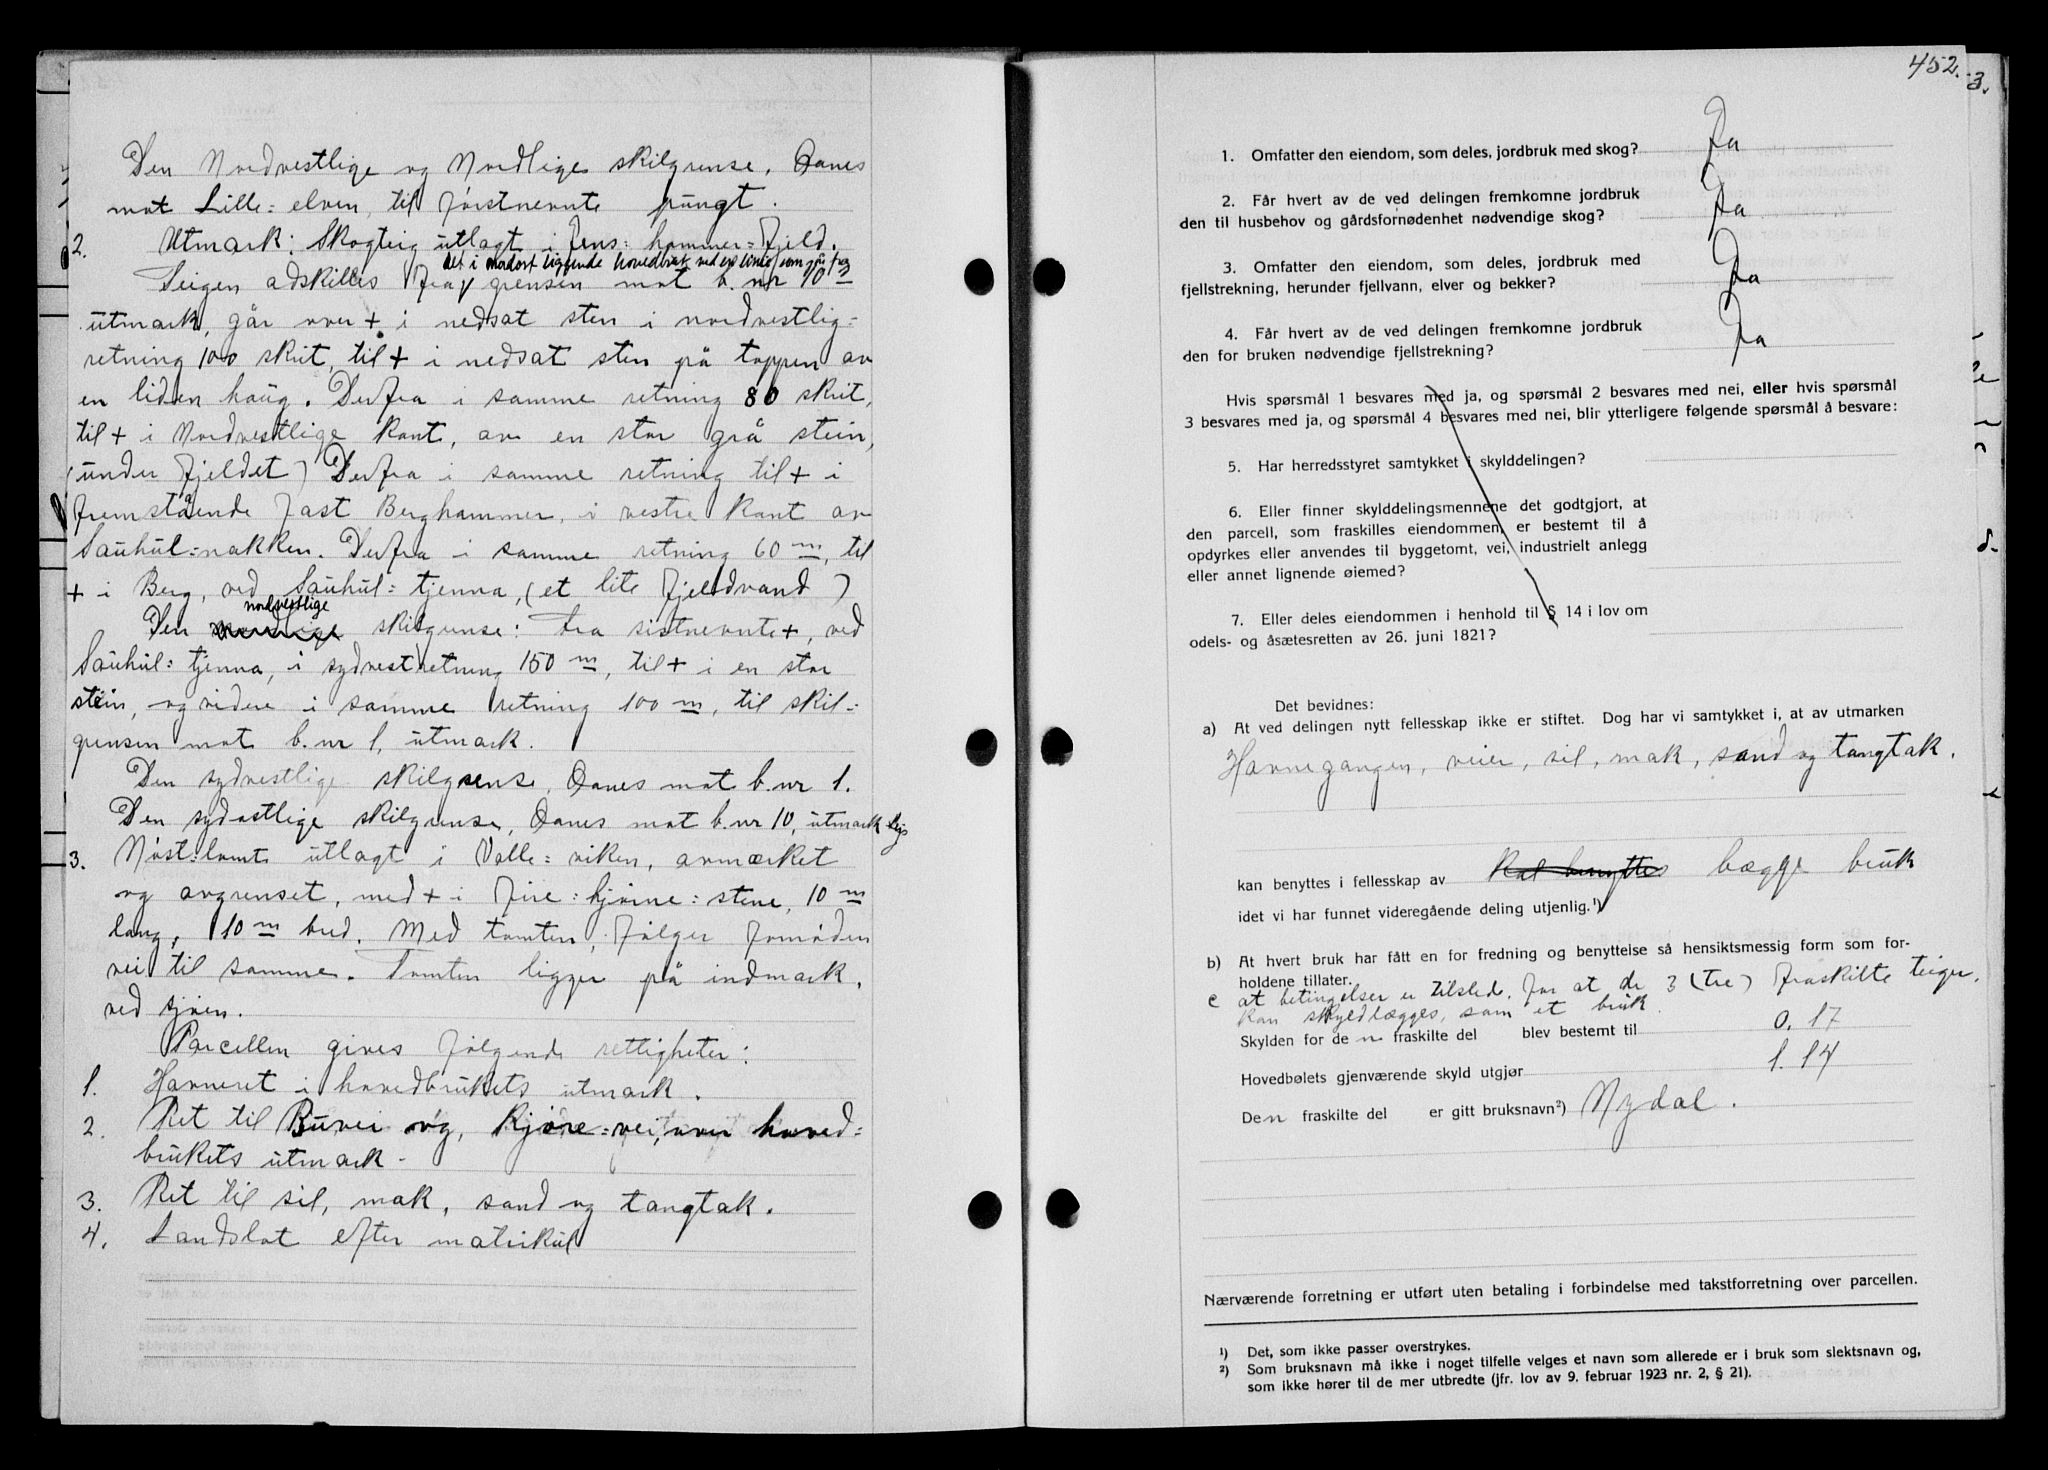 Den Nordvestlige og Nordlige skilgrense, Danes
mot Lille=elven, til førstnevnte pungt.
2. Utmark: Skogteig utlagt i Jens=hammer=fjeld.
det i nordost liggende hovedbruk ved en linie som går fra
Teigen adskilles fra grensen mot b.nr 10 m
utmark, går over + i nedsat sten i nordvestlig=
retning 100 skrit, til + i nedsat sten på toppen av
en liden haug. Derfra i samme retning 80 skrit,
til + i Nordvestlige kant, av en stor grå stein,
(under fjeldet) Derfra i samme retning til + i
fremstående fast Berghammer, i vestre kant av
Sauhul=nakken. Derfra i samme retning 60 m, til
+ i Berg, ved Sauhul=tjenna, (et lite fjeldvand)
nordvestlige
Den skilgrense: fra sistnevnte +, ved
Sauhul=tjenna, i sydvestretning 150 m, til + i en stor
stein, og videre i samme retning 100 m, til skil-
grensen mot b.nr 1, utmark.
Den sydvestlige skilgrense, Danes mot b.nr 1.
Den sydostlige skilgrense, Danes mot b.nr 10, utmark
3. Nøst=tomt utlagt i Valle=viken, avmerket
og avgrenset, med + i fire=hjørne=stene, 10 m
lang, 10 m bred. Med tomten, følger fornøden
vei til samme. Tomten ligger på indmark,
ved sjøen.
Parcellen gives følgende rettigheter:
1. Havneret i hovedbrukets utmark.
2. Ret til Buvei og, Kjøre=vei, over hoved=
brukets utmark.
3. Ret til sil, mak, sand og tangtak.
4. Landslot efter matrikul
452.
3.
1. Omfatter den eiendom, som deles, jordbruk med skog? Ja
2. Får hvert av de ved delingen fremkomne jordbruk
den til husbehov og gårdsfornødenhet nødvendige skog? Ja
3. Omfatter den eiendom, som deles, jordbruk med
fjellstrekning, herunder fjellvann, elver og bekker? Ja
4. Får hvert av de ved delingen fremkomne jordbruk
den for bruken nødvendige fjellstrekning? Ja
Hvis spørsmål 1 besvares med ja, og spørsmål 2 besvares med nei, eller hvis spørsmål
3 besvares med ja, og spørsmål 4 besvares med nei, blir ytterligere følgende spørsmål å besvare:
5. Har herredsstyret samtykket i skylddelingen?
6. Eller finner skylddelingsmennene det godtgjort, at
den parcell, som fraskilles eiendommen, er bestemt til å
opdyrkes eller anvendes til byggetomt, vei, industrielt anlegg
eller annet lignende øiemed?
7. Eller deles eiendommen i henhold til § 14 i lov om
odels- og åsætesretten av 26. juni 1821?
Det bevidnes:
a) At ved delingen nytt fellesskap ikke er stiftet. Dog har vi samtykket i, at av utmarken
Havnegangen, veier, sil, mak, sand og tangtak.
kan benyttes i fellesskap av Kat benyttes bægge bruk
idet vi har funnet videregående deling utjenlig.¹)
b) At hvert bruk har fått en for fredning og benyttelse så hensiktsmessig form som for-
holdene tillater.
c at betingelser er tilsted, for at de 3 (tre) fraskilte teiger,
kan skyldlægges, som et bruk.
Skylden for de n fraskilte del blev bestemt til 0.17
Hovedbølets gjenværende skyld utgjør 1.14
Den fraskilte del er gitt bruksnavn²) Nydal.
Nærværende forretning er utført uten betaling i forbindelse med takstforretning over parcellen.
¹) Det, som ikke passer overstrykes.
²) Som bruksnavn må ikke i noget tilfelle velges et navn som allerede er i bruk som slektsnavn og,
som ikke hører til de mer utbredte (jfr. lov av 9. februar 1923 nr. 2, § 21).